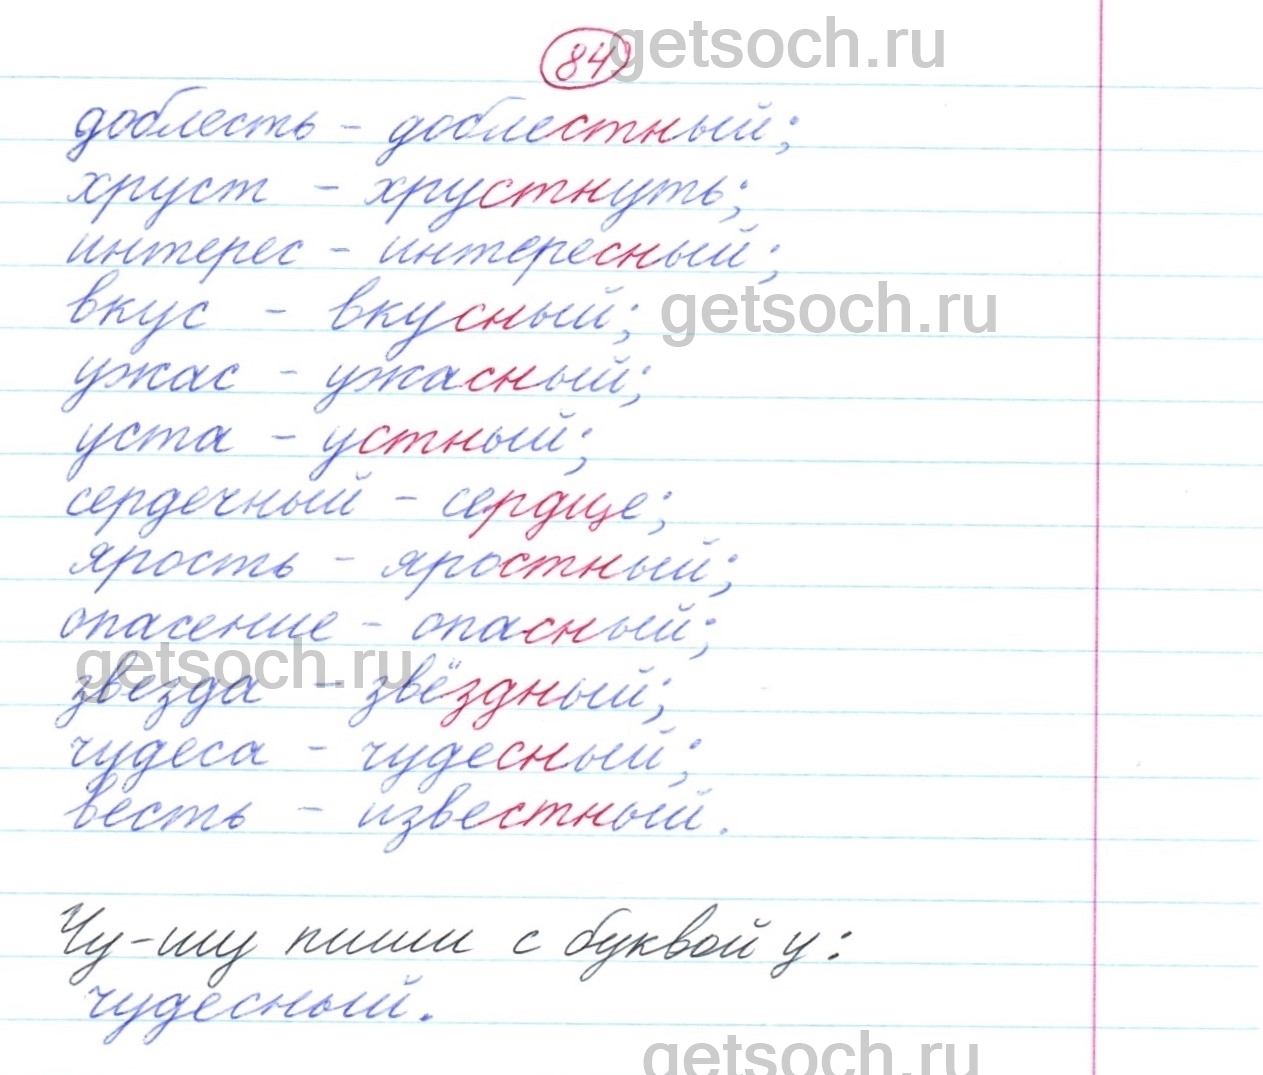 84 getsoch.ru
доблесть - доблестный;
хруст - хрустнуть;
интерес - интересный;
вкус - вкусный; getsoch.ru
ужас - ужасный;
уста - устный;
сердечный - сердце;
ярость - яростный;
опасение - опасный;
getsoch.ru
звезда - звёздный;
чудеса - чудесный;
весть - известный.
Чу-шу пиши с буквой у:
чудесный.
getsoch.ru